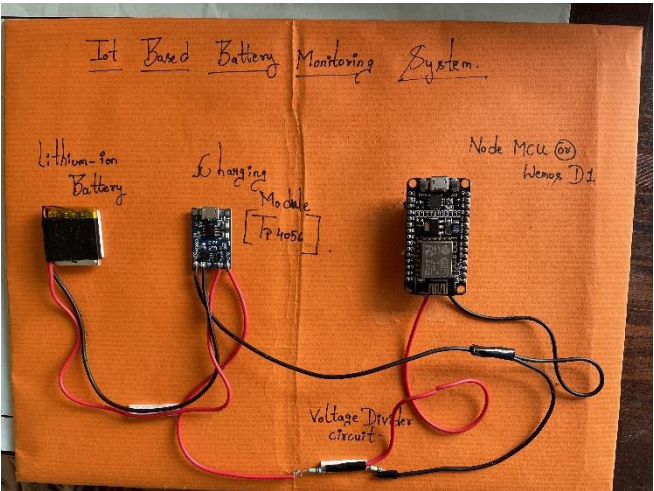 Iot Based Battery Monitoring System.
Lithium-ion
Battery
Charging
Module
[TP4056].
Node MCU or
Wemos D1
Voltage Divider
circuit.